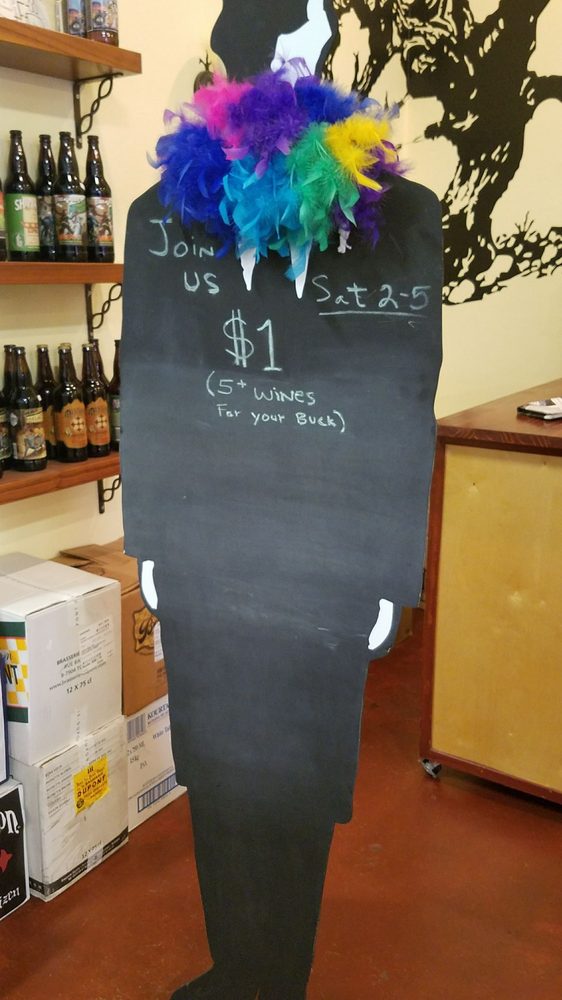 Join
us
Sat 2-5
$1
(5+ wines
For your Buck)
BRASSERIE
12 X 75 cl
DUPONT